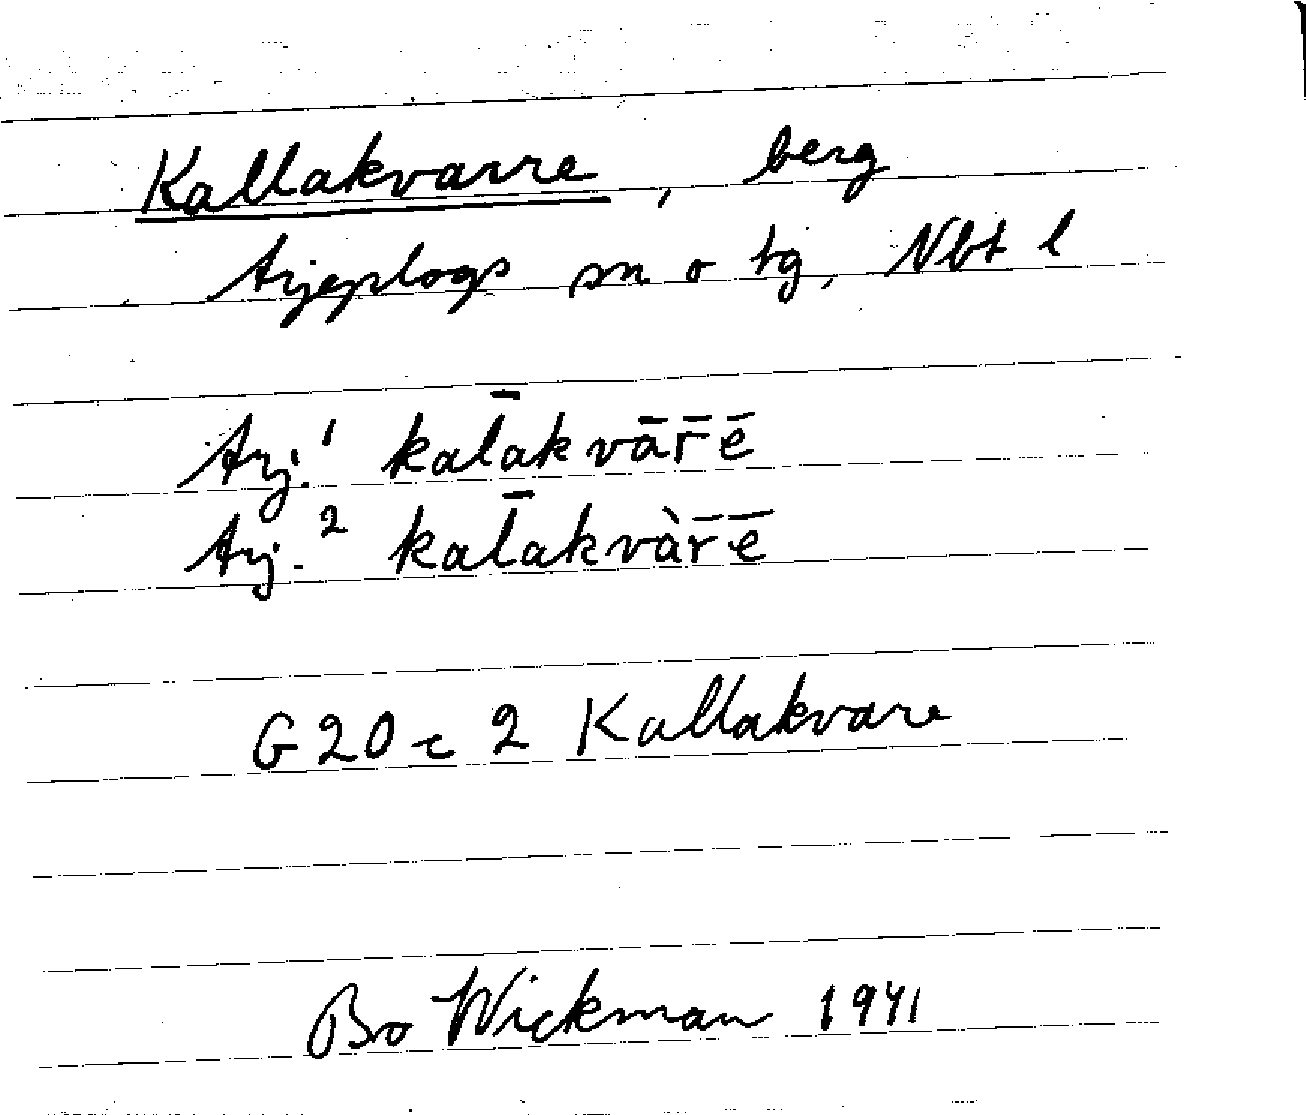 Kallakvarre, berg
Arjeplogs sn o tg, Nbt l
Arj.¹ kal̄akvār̄ē
Arj.² kal̄akvàr̄ē
G 20 c 2 Kallakvare
Bo Wickman 1941